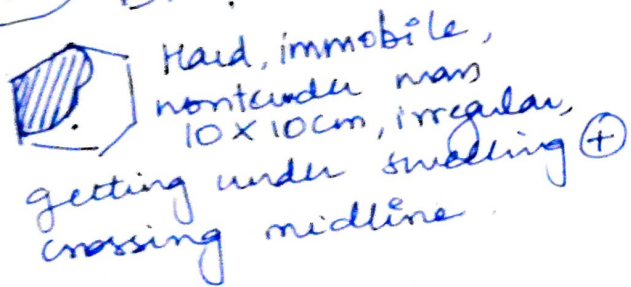 Hard, immobile,
nontender mass
10 x 10cm, irregular,
getting under swelling ⊕
crossing midline.